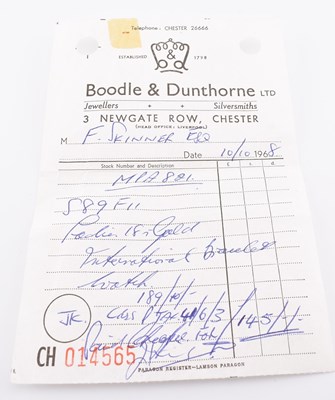 Telephone: CHESTER 25666
ESTABLISHED 1798
Boodle & Dunthorne LTD
Jewellers + + Silversmiths
3 NEWGATE ROW, CHESTER
(HEAD OFFICE: LIVERPOOL)
M F. SKINNER ESQ
Date 10/10 1968
Stock Number and Description £ s. d.
589 F11
Ladies 18ct Gold
International Bracelet
Watch
189/10/-
JK. 145/-/-
CH 014565
PARAGON REGISTER—LAMSON PARAGON